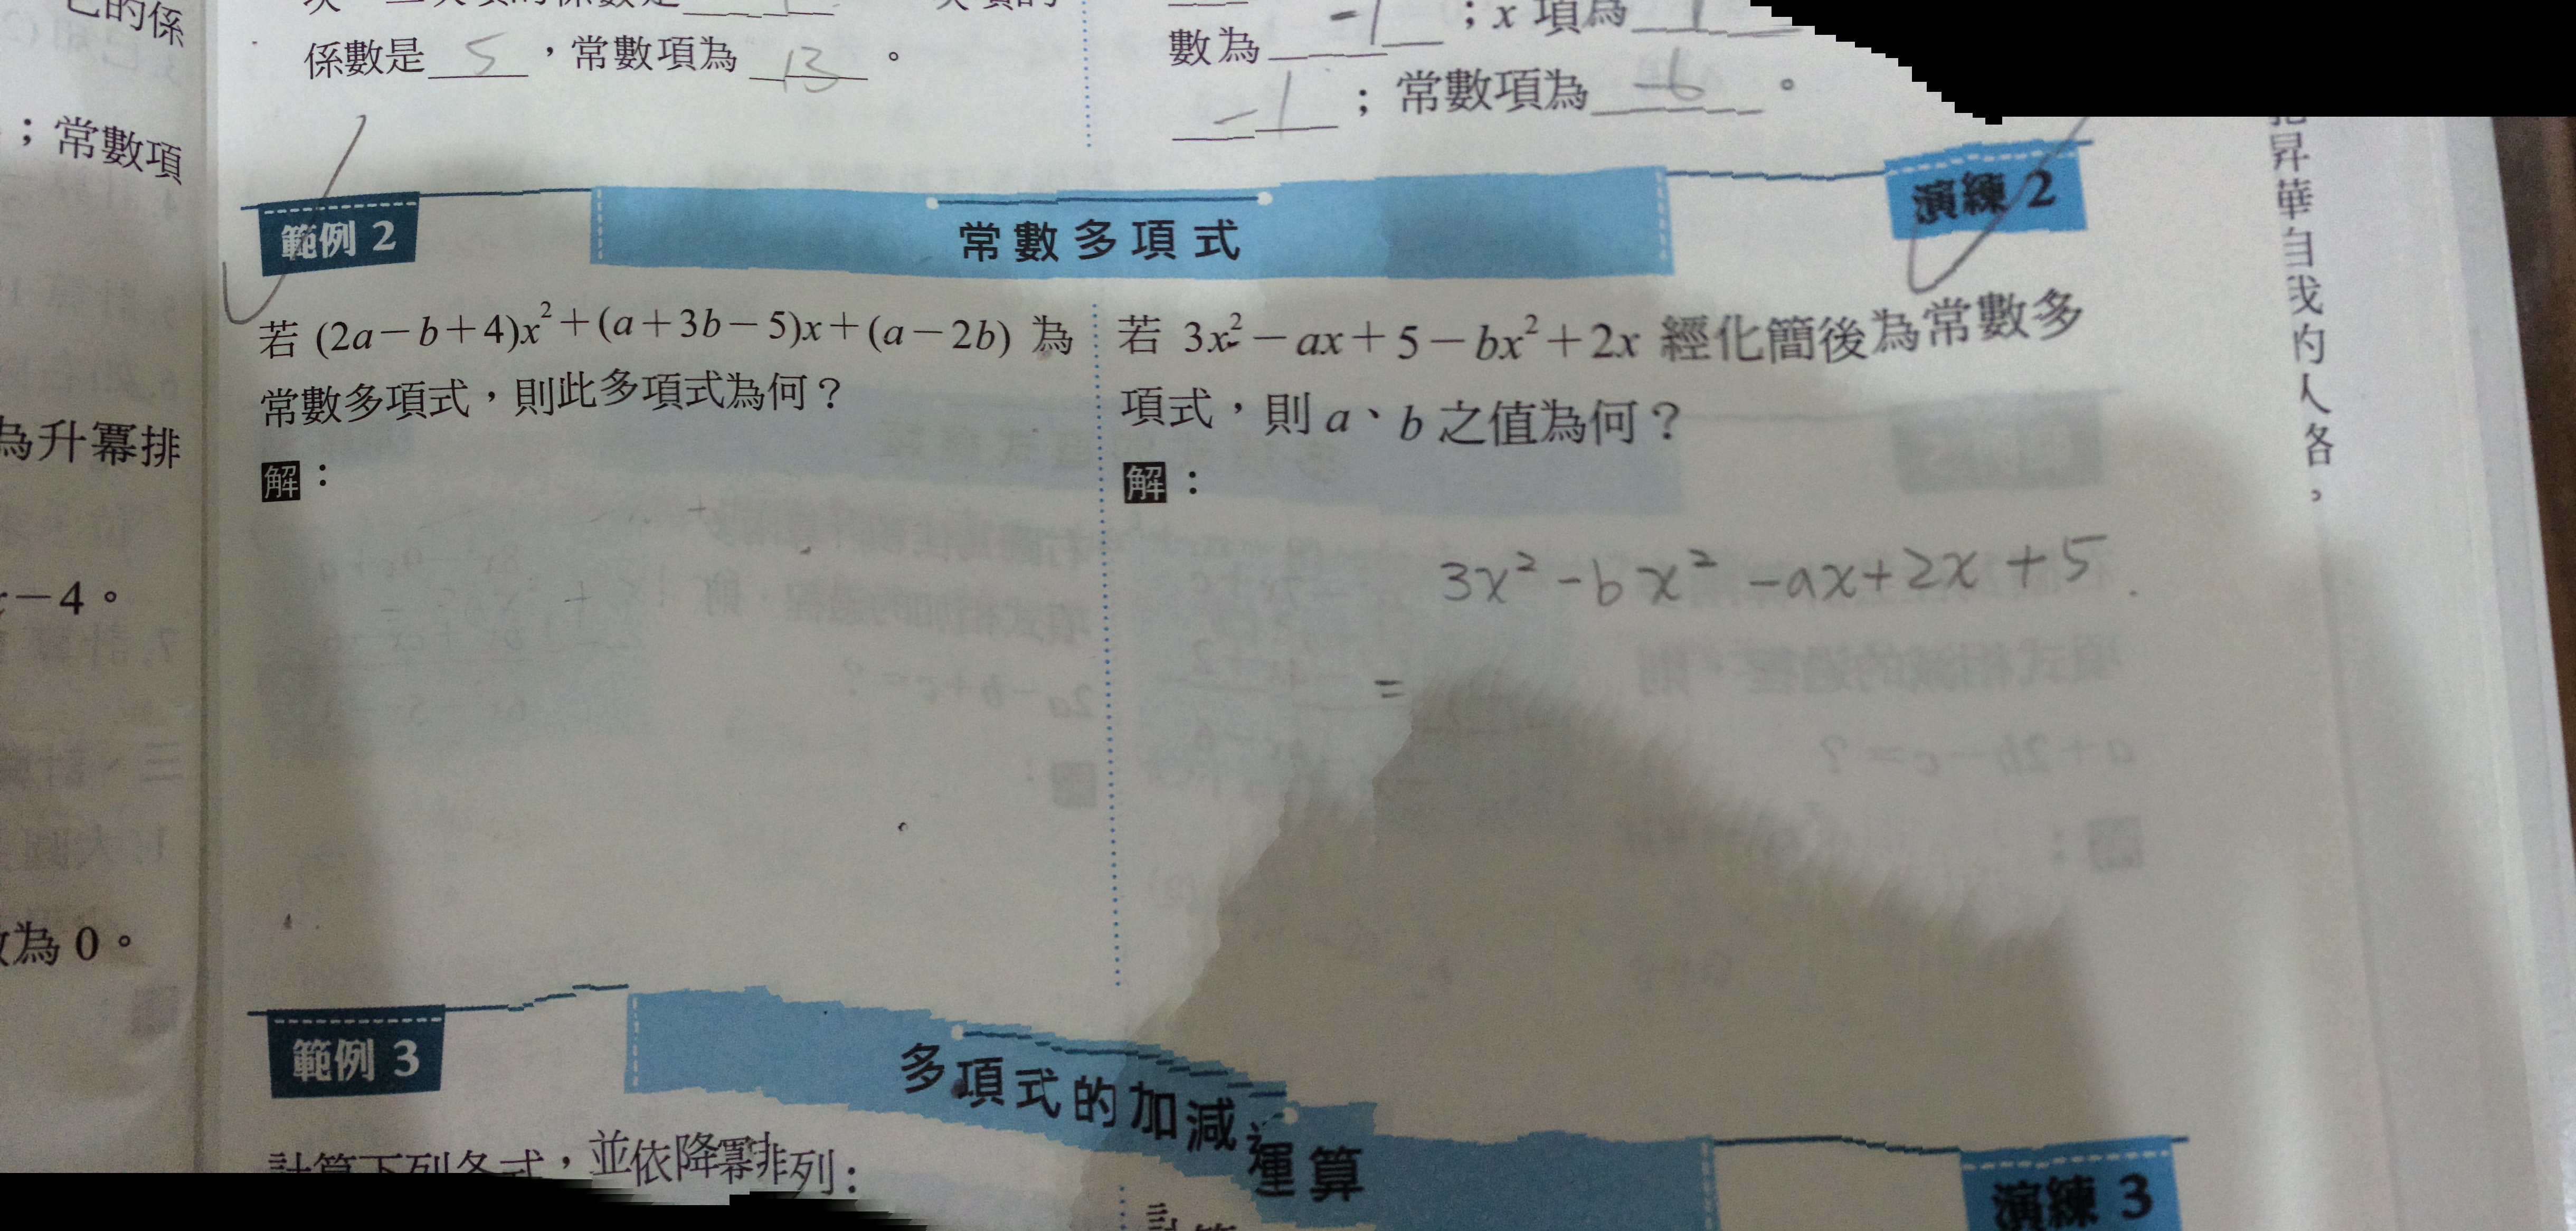 係數是 5 ,常數項為 13 。
數為 -1 ;x 項為
-1 ;常數項為 -6 。
範例 2
常數多項式
演練 2
若 (2a-b+4)x²+(a+3b-5)x+(a-2b) 為
常數多項式,則此多項式為何?
解:
若 3x²-ax+5-bx²+2x 經化簡後為常數多
項式,則 a、b 之值為何?
解:
3x²-bx²-ax+2x+5
=
範例 3
多項式的加減運算
演練 3
計算下列各式,並依降冪排列:
;常數項
為升冪排
-4。
為 0。
昇華自我的人各,